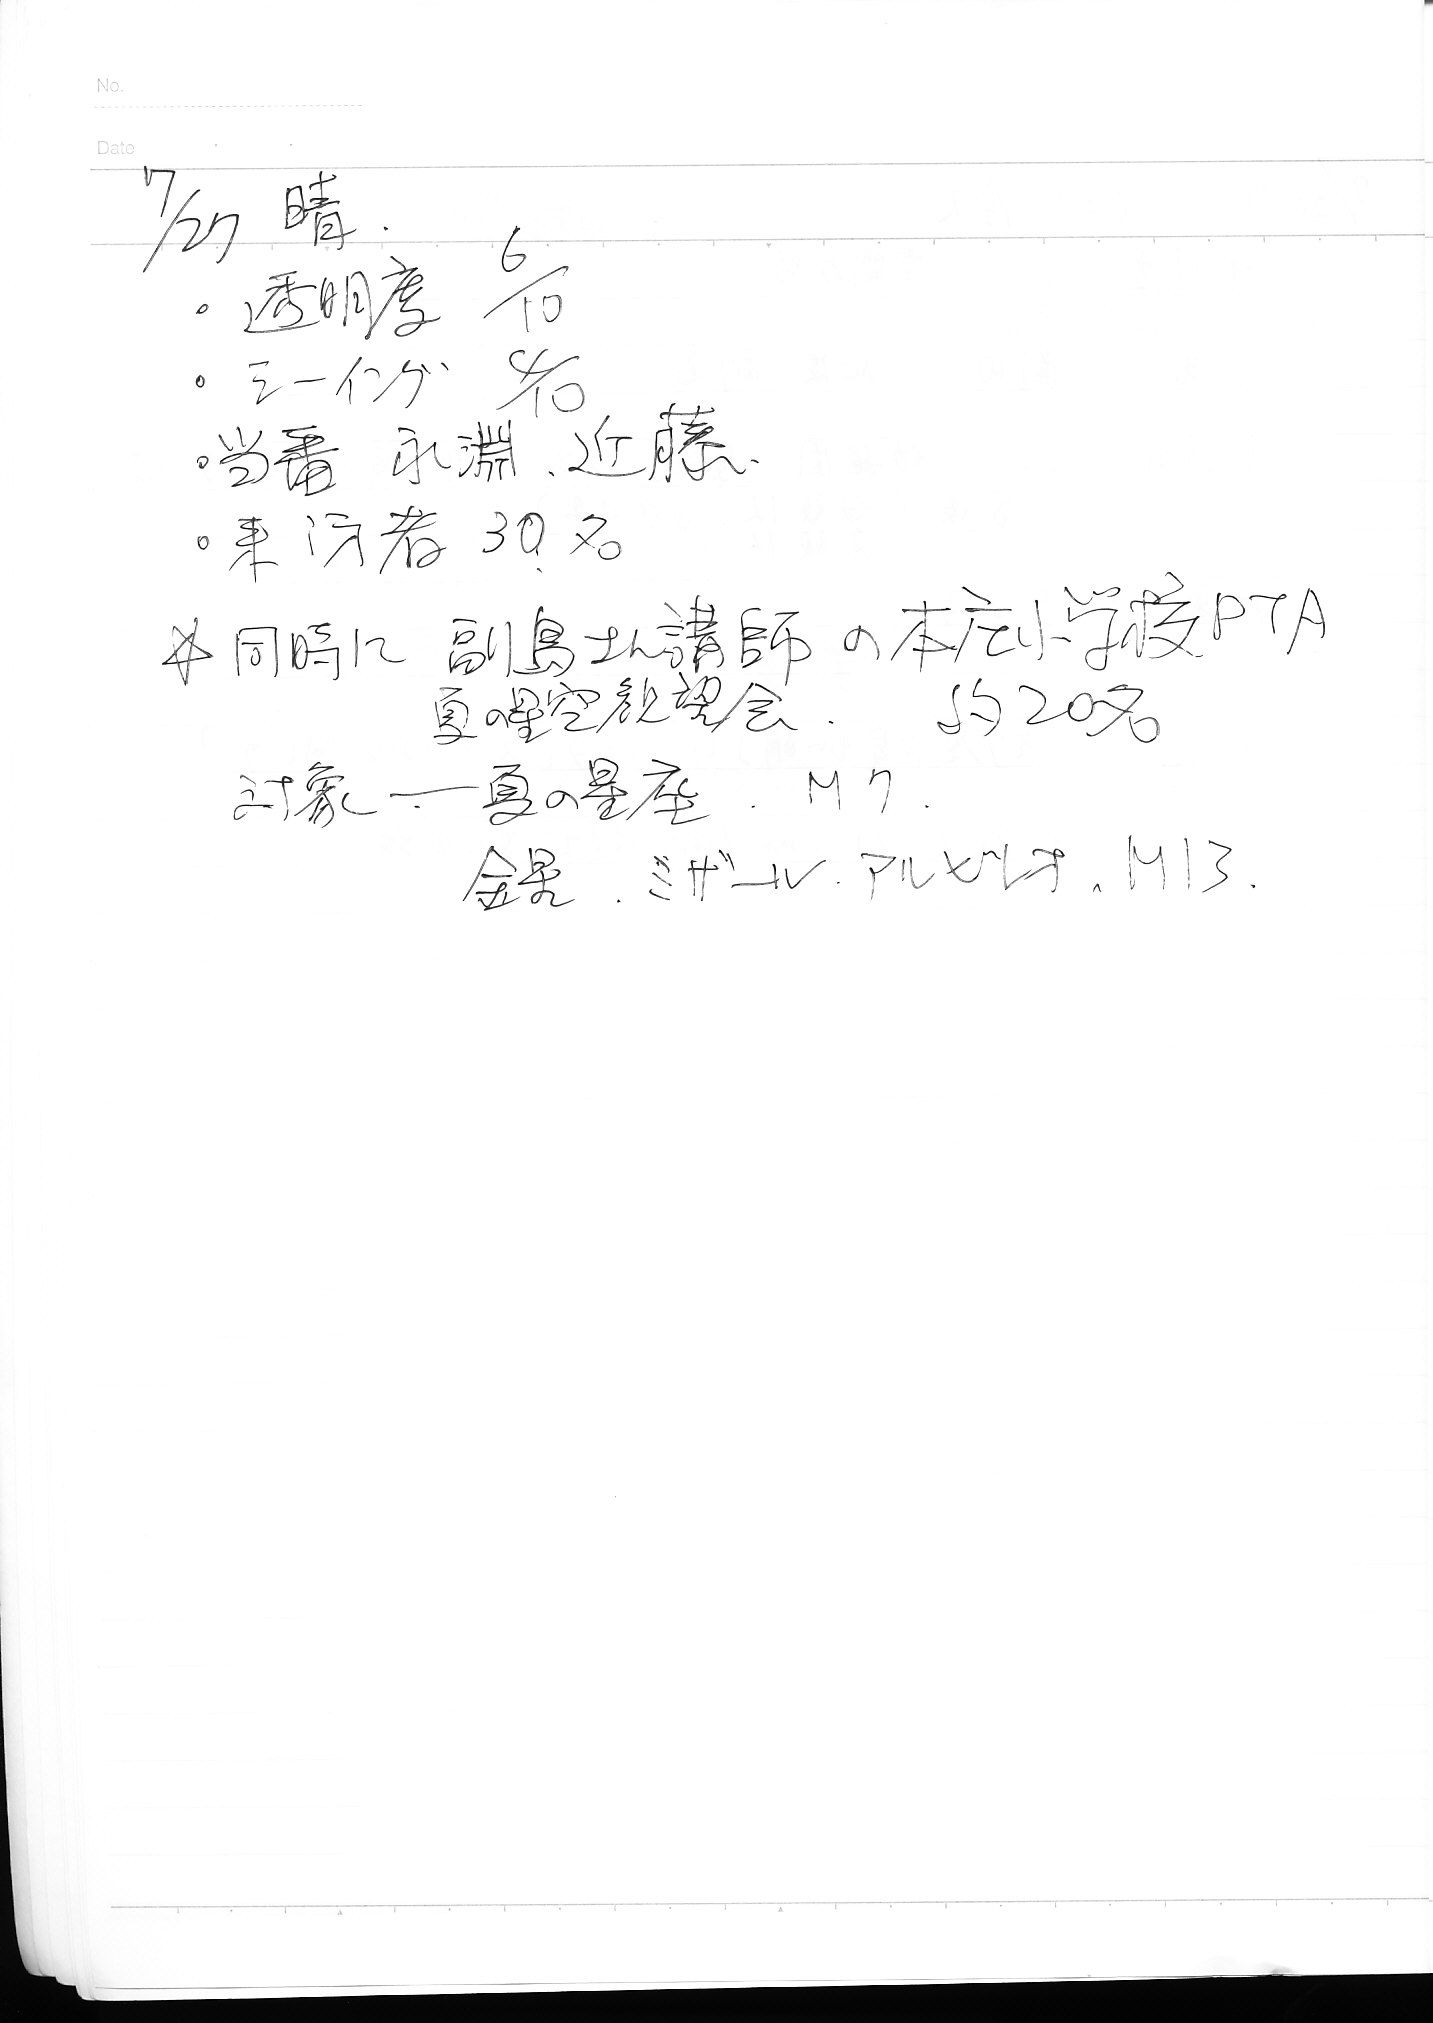 No.
Date
7/27 晴.
・透明度 6/10
・シーイング 4/10
・当番 永淵、近藤、
・来訪者 30名
☆同時に 副島さん講師の本庄小学校PTA
夏の星空観望会. 約20名
対象 ― 夏の星座. M7.
金星. ミザール. アルビレオ、M13.